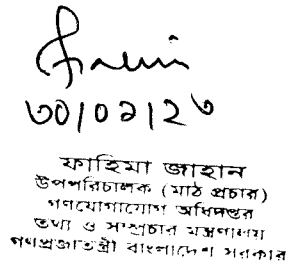 ৩০|০১|২৩
ফাহিমা জাহান
উপপরিচালক (মাঠ প্রচার)
গণযোগাযোগ অধিদপ্তর
তথ্য ও সম্প্রচার মন্ত্রণালয়
গণপ্রজাতন্ত্রী বাংলাদেশ সরকার